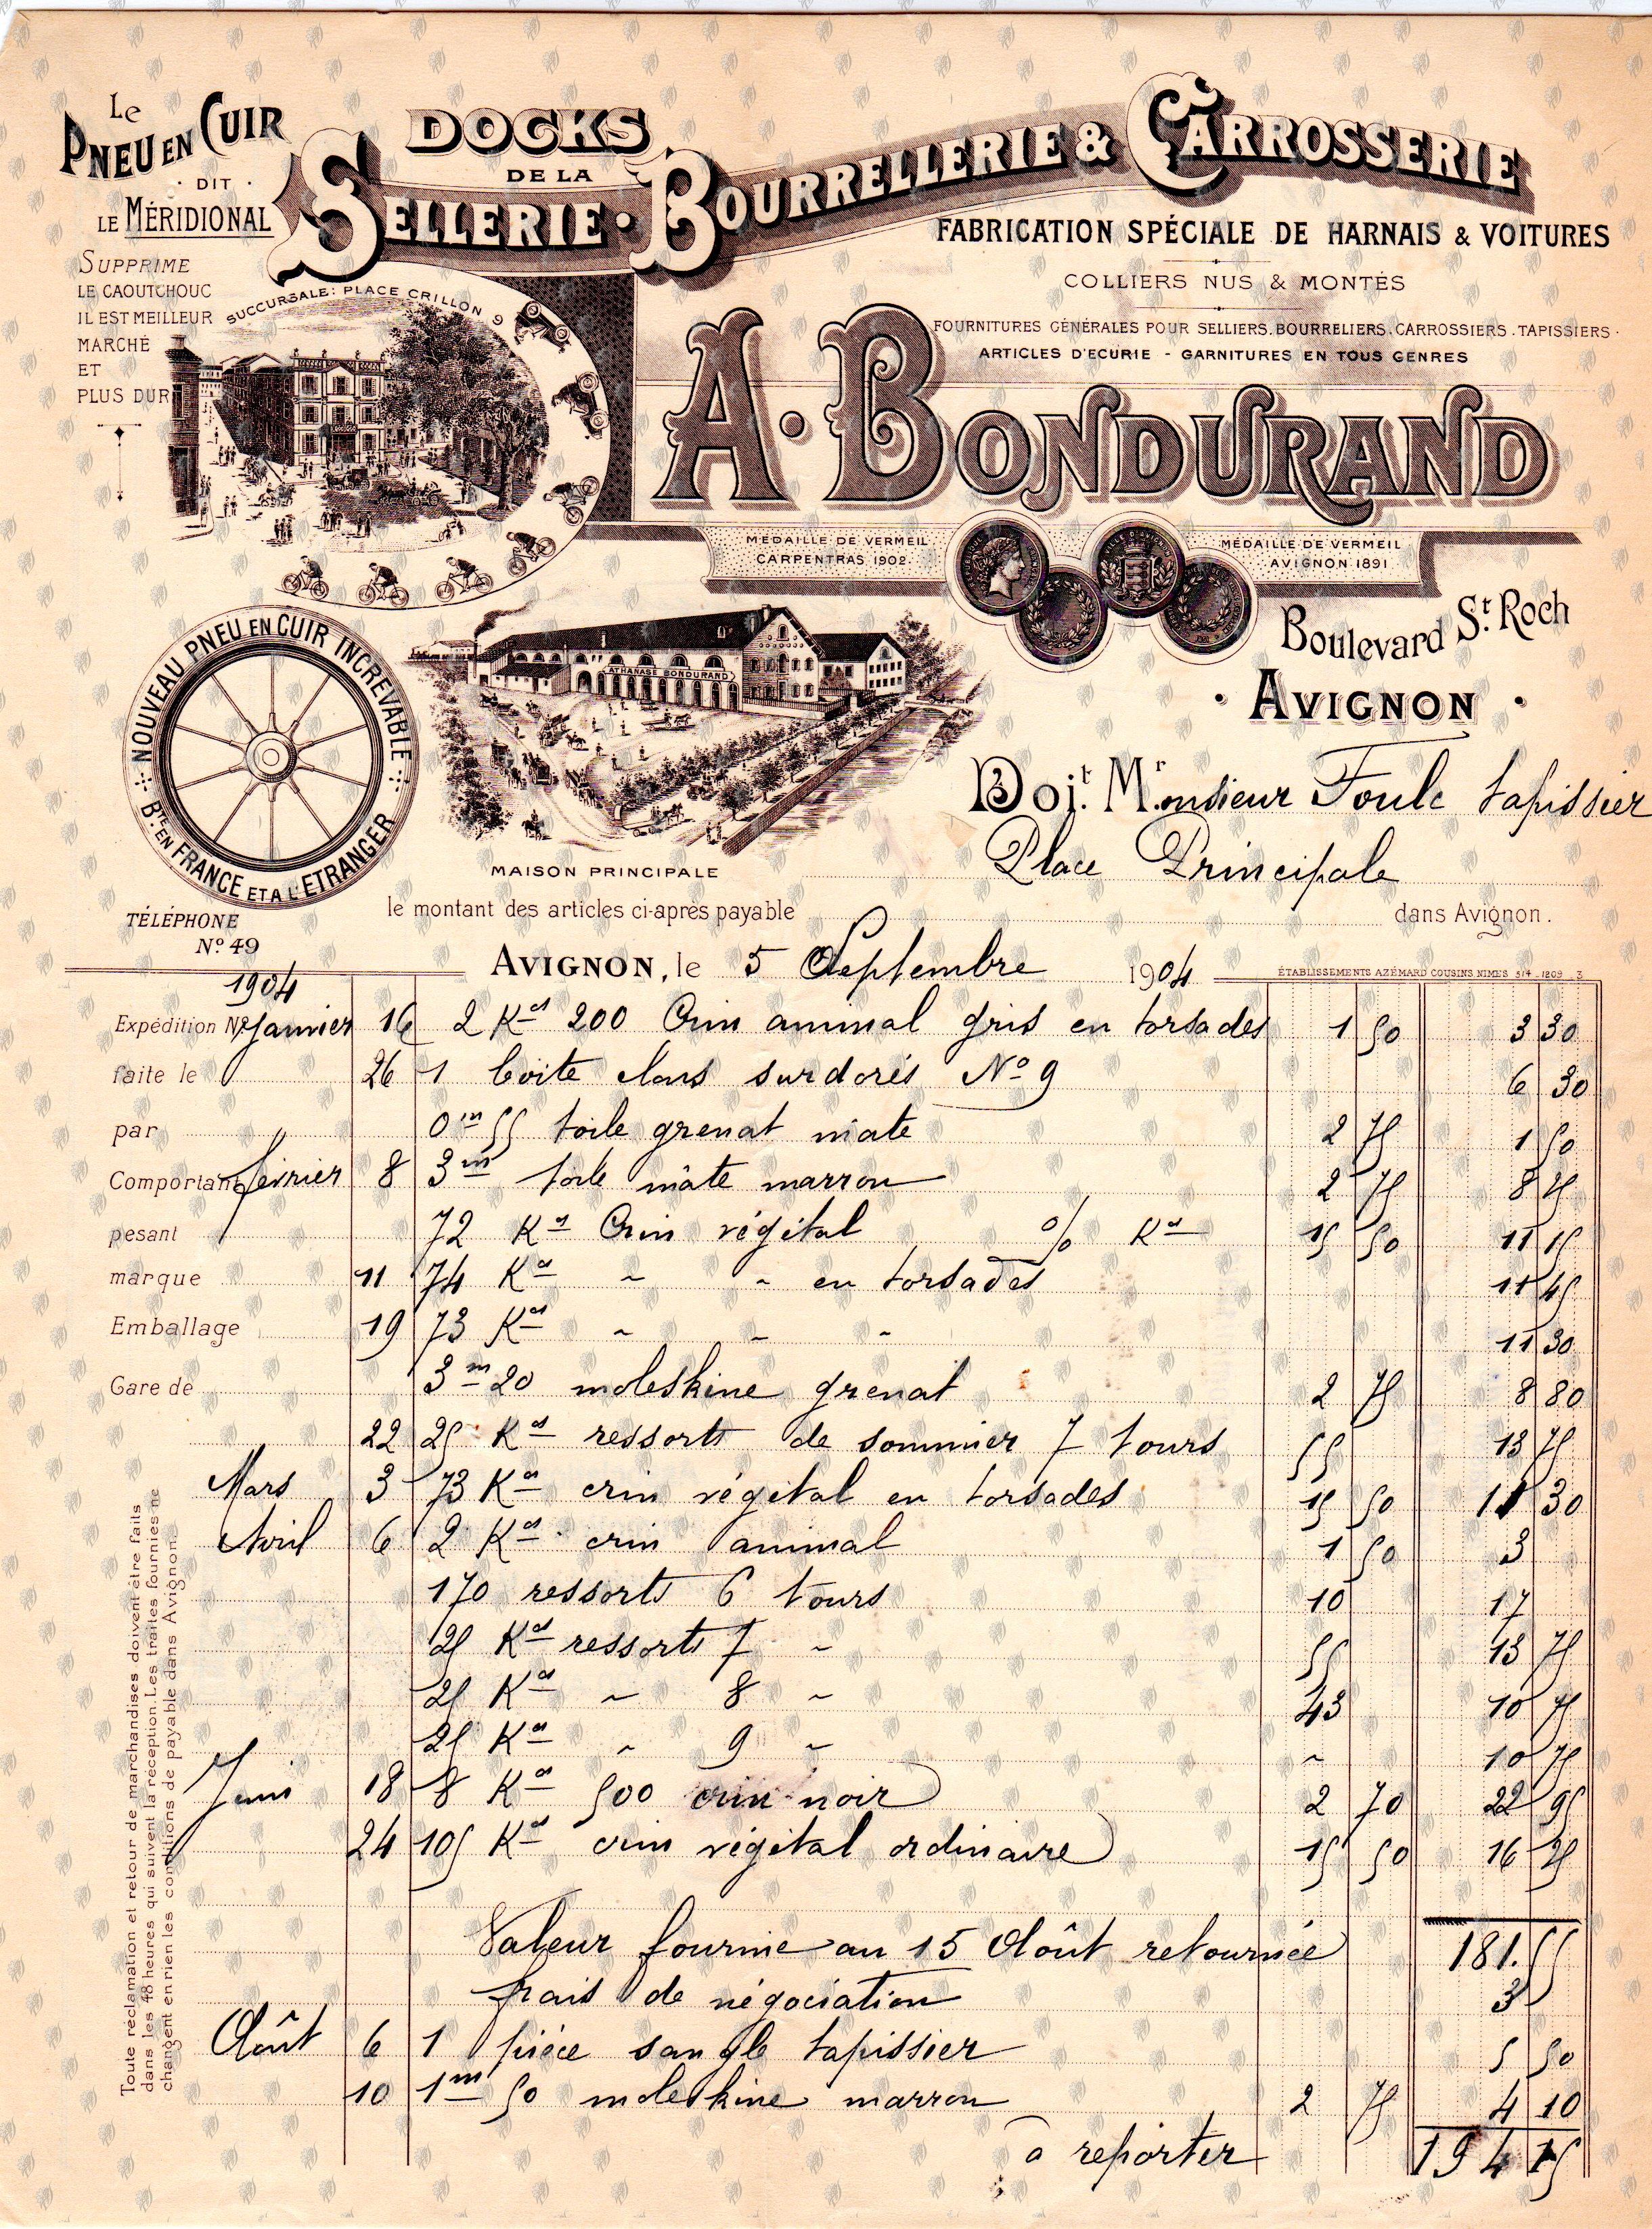 Le
PNEU EN CUIR
· DIT ·
LE MÉRIDIONAL
SUPPRIME
LE CAOUTCHOUC
IL EST MEILLEUR
MARCHÉ
ET
PLUS DUR
DOCKS
DE LA
SELLERIE · BOURRELLERIE & CARROSSERIE
FABRICATION SPÉCIALE DE HARNAIS & VOITURES
COLLIERS NUS & MONTÉS
FOURNITURES GÉNÉRALES POUR SELLIERS. BOURRELIERS. CARROSSIERS. TAPISSIERS.
ARTICLES D'ECURIE - GARNITURES EN TOUS GENRES
SUCCURSALE: PLACE CRILLON 9
A · BONDURAND
MÉDAILLE DE VERMEIL
CARPENTRAS 1902.
MÉDAILLE DE VERMEIL
AVIGNON 1891
Boulevard St. Roch
· AVIGNON ·
NOUVEAU PNEU EN CUIR INCREVABLE
BTE. EN FRANCE ET A L'ETRANGER
ATHANASE BONDURAND
MAISON PRINCIPALE
TÉLÉPHONE
No 49
Doit Mr. onsieur Foulc tapissier
Place Principale
le montant des articles ci-après payable dans Avignon.
AVIGNON, le 5 Septembre 1904
ÉTABLISSEMENTS AZÉMARD COUSINS NIMES 514 _ 1209 _ 3
1904
Expédition No Janvier 16 2 Kos 200 Crin animal gris en torsades 1 50 3 30
faite le 26 1 boite clous surdorés No 9 6 30
par 0m 55 toile grenat mate 2 75 1 50
Comportant février 8 3m toile mâte marron 2 75 8 25
pesant 72 Kos Crin végétal % Kos 15 50 11 15
marque 11 74 Kos ~ ~ en torsades 11 45
Emballage 19 73 Kos ~ ~ ~ 11 30
Gare de 3m 20 moleskine grenat 2 75 8 80
22 25 Kos ressorts de sommier 7 tours 55 13 75
Mars 3 73 Kos crin végétal en torsades 15 50 11 30
Avril 6 2 Kos crin animal 1 50 3
170 ressorts 6 tours 10 17
25 Kos ressorts 7 ~ 55 13 75
25 Kos ~ 8 ~ 43 10 75
25 Kos ~ 9 ~ ~ 10 75
Juin 18 8 Kos 500 crin noir 2 70 22 95
24 105 Kos crin végétal ordinaire 15 50 16 25
Valeur fournie au 15 Août retournée 181.55
frais de négociation 3
Août 6 1 pièce sangle tapissier 5 50
10 1m 50 moleskine marron 2 75 4 10
a reporter 194 15
Toute réclamation et retour de marchandises doivent être faits
dans les 48 heures qui suivent la réception. Les traites fournies ne
changent en rien les conditions de payable dans Avignon.